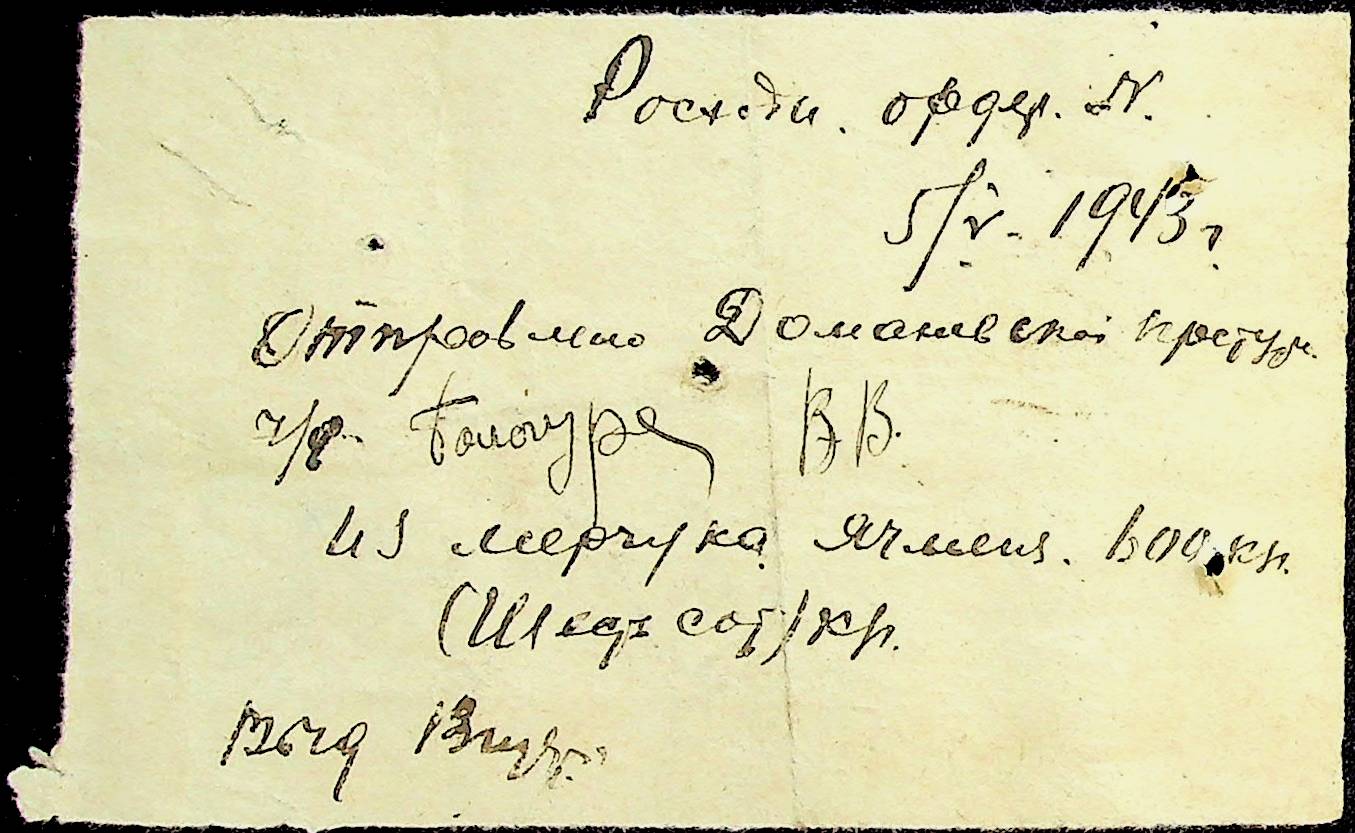 Расходн. ордер. N.
5/V- 1943 г
Отправлено Доманевской претур.
ч/р В В.
из мерчука ячменя. 600 кг.
(Шестьсот) кг.
Выд